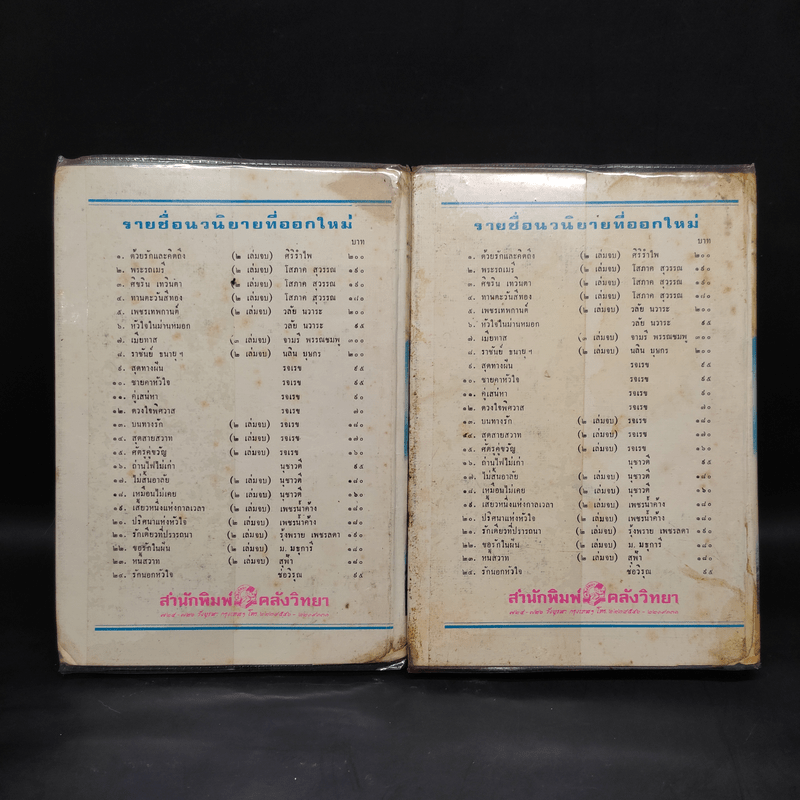 รายชื่อนวนิยายที่ออกใหม่
บาท
๑. ด้วยรักและคิดถึง (๒ เล่มจบ) ศิริรำไพ ๒๐๐
๒. พระรถเมรี (๒ เล่มจบ) โสภาค สุวรรณ ๑๙๐
๓. ศิขริน เทวินตา (๒ เล่มจบ) โสภาค สุวรรณ ๑๙๐
๔. ทานตะวันสีทอง (๒ เล่มจบ) โสภาค สุวรรณ ๑๘๐
๕. เพชรเทพกานต์ (๒ เล่มจบ) วลัย นวาระ ๒๐๐
๖. หัวใจในม่านหมอก วลัย นวาระ ๙๕
๗. เมียทาส (๓ เล่มจบ) จามรี พรรณชมพู ๓๐๐
๘. ราชันย์ ธนายุฯ (๒ เล่มจบ) นลิน บุษกร ๒๐๐
๙. สุดทางฝัน รจเรข ๙๕
๑๐. ชายคาหัวใจ รจเรข ๙๕
๑๑. คู่เสน่หา รจเรข ๙๐
๑๒. ดวงใจพิศวาส รจเรข ๗๐
๑๓. บนทางรัก (๒ เล่มจบ) รจเรข ๑๘๐
๑๔. สุดสายสวาท (๒ เล่มจบ) รจเรข ๑๗๐
๑๕. ศัตรูคู่ขวัญ (๒ เล่มจบ) รจเรข ๑๖๐
๑๖. ถ่านไฟไม่เก่า นุชาวดี ๙๕
๑๗. ไม่สิ้นอาลัย (๒ เล่มจบ) นุชาวดี ๑๘๐
๑๘. เหมือนไม่เคย (๒ เล่มจบ) นุชาวดี ๑๖๐
๑๙. เสี้ยวหนึ่งแห่งกาลเวลา (๒ เล่มจบ) เพชรน้ำค้าง ๑๘๐
๒๐. ปริศนาแห่งหัวใจ (๒ เล่มจบ) เพชรน้ำค้าง ๑๘๐
๒๑. รักเดียวที่ปรารถนา (๒ เล่มจบ) รุ้งพราย เพชรลดา ๑๙๐
๒๒. ขอรักในฝัน (๒ เล่มจบ) ม. มธุการี ๑๘๐
๒๓. หนี้สวาท (๒ เล่มจบ) สุฟ้า ๑๘๐
๒๔. รักนอกหัวใจ ช่อวิรุณ ๙๕
สำนักพิมพ์ คลังวิทยา
รายชื่อนวนิยายที่ออกใหม่
บาท
๑. ด้วยรักและคิดถึง (๒ เล่มจบ) ศิริรำไพ ๒๐๐
๒. พระรถเมรี (๒ เล่มจบ) โสภาค สุวรรณ ๑๙๐
๓. ศิขริน เทวินตา (๒ เล่มจบ) โสภาค สุวรรณ ๑๙๐
๔. ทานตะวันสีทอง (๒ เล่มจบ) โสภาค สุวรรณ ๑๘๐
๕. เพชรเทพกานต์ (๒ เล่มจบ) วลัย นวาระ ๒๐๐
๖. หัวใจในม่านหมอก วลัย นวาระ ๙๕
๗. เมียทาส (๓ เล่มจบ) จามรี พรรณชมพู ๓๐๐
๘. ราชันย์ ธนายุฯ (๒ เล่มจบ) นลิน บุษกร ๒๐๐
๙. สุดทางฝัน รจเรข ๙๕
๑๐. ชายคาหัวใจ รจเรข ๙๕
๑๑. คู่เสน่หา รจเรข ๙๐
๑๒. ดวงใจพิศวาส รจเรข ๗๐
๑๓. บนทางรัก (๒ เล่มจบ) รจเรข ๑๘๐
๑๔. สุดสายสวาท (๒ เล่มจบ) รจเรข ๑๗๐
๑๕. ศัตรูคู่ขวัญ (๒ เล่มจบ) รจเรข ๑๖๐
๑๖. ถ่านไฟไม่เก่า นุชาวดี ๙๕
๑๗. ไม่สิ้นอาลัย (๒ เล่มจบ) นุชาวดี ๑๘๐
๑๘. เหมือนไม่เคย (๒ เล่มจบ) นุชาวดี ๑๖๐
๑๙. เสี้ยวหนึ่งแห่งกาลเวลา (๒ เล่มจบ) เพชรน้ำค้าง ๑๘๐
๒๐. ปริศนาแห่งหัวใจ (๒ เล่มจบ) เพชรน้ำค้าง ๑๘๐
๒๑. รักเดียวที่ปรารถนา (๒ เล่มจบ) รุ้งพราย เพชรลดา ๑๙๐
๒๒. ขอรักในฝัน (๒ เล่มจบ) ม. มธุการี ๑๘๐
๒๓. หนี้สวาท (๒ เล่มจบ) สุฟ้า ๑๘๐
๒๔. รักนอกหัวใจ ช่อวิรุณ ๙๕
สำนักพิมพ์ คลังวิทยา